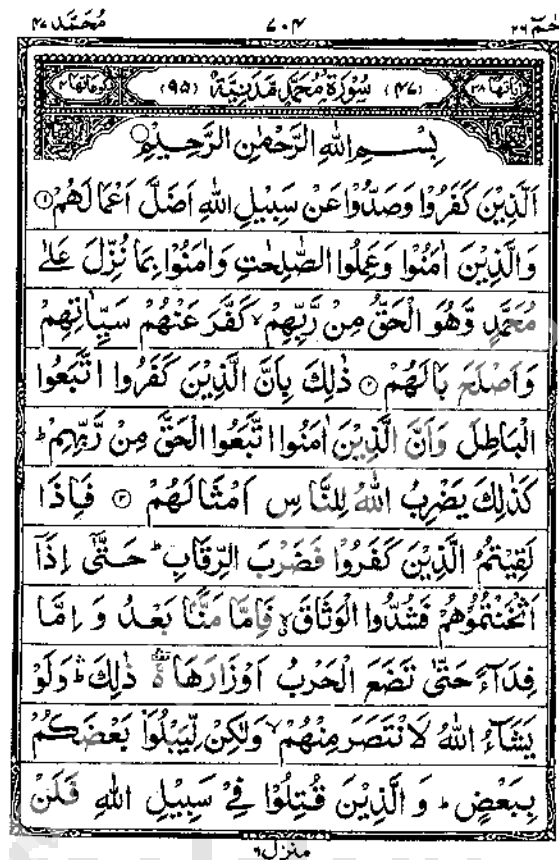 مُحَمَّد ٤٧ ٧٠٤ حٰمٓ ٢٦
اٰیَاتُهَا ٣٨ (٤٧) سُوْرَةُ مُحَمَّدٍ مَّدَنِیَّةٌ (٩٥) رُكُوْعَاتُهَا ٤
بِسْمِ اللهِ الرَّحْمٰنِ الرَّحِیْمِ
اَلَّذِیْنَ كَفَرُوْا وَصَدُّوْا عَنْ سَبِیْلِ اللهِ اَضَلَّ اَعْمَالَهُمْ ۝١
وَالَّذِیْنَ اٰمَنُوْا وَعَمِلُوا الصّٰلِحٰتِ وَاٰمَنُوْا بِمَا نُزِّلَ عَلٰى
مُحَمَّدٍ وَّهُوَ الْحَقُّ مِنْ رَّبِّهِمْ ۙ كَفَّرَ عَنْهُمْ سَیِّاٰتِهِمْ
وَاَصْلَحَ بَالَهُمْ ۝٢ ذٰلِكَ بِاَنَّ الَّذِیْنَ كَفَرُوا اتَّبَعُوا
الْبَاطِلَ وَاَنَّ الَّذِیْنَ اٰمَنُوا اتَّبَعُوا الْحَقَّ مِنْ رَّبِّهِمْ ؕ
كَذٰلِكَ یَضْرِبُ اللهُ لِلنَّاسِ اَمْثَالَهُمْ ۝٣ فَاِذَا
لَقِیْتُمُ الَّذِیْنَ كَفَرُوْا فَضَرْبَ الرِّقَابِ ؕ حَتّٰۤى اِذَاۤ
اَثْخَنْتُمُوْهُمْ فَشُدُّوا الْوَثَاقَ ۙ فَاِمَّا مَنًّۢا بَعْدُ وَ اِمَّا
فِدَآءً حَتّٰى تَضَعَ الْحَرْبُ اَوْزَارَهَا ۛ۫ ذٰلِكَ ۛؕ وَلَوْ
یَشَآءُ اللهُ لَانْتَصَرَ مِنْهُمْ ۙ وَلٰكِنْ لِّیَبْلُوَا۠ بَعْضَكُمْ
بِبَعْضٍ ؕ وَ الَّذِیْنَ قُتِلُوْا فِیْ سَبِیْلِ اللهِ فَلَنْ
منزل ٦